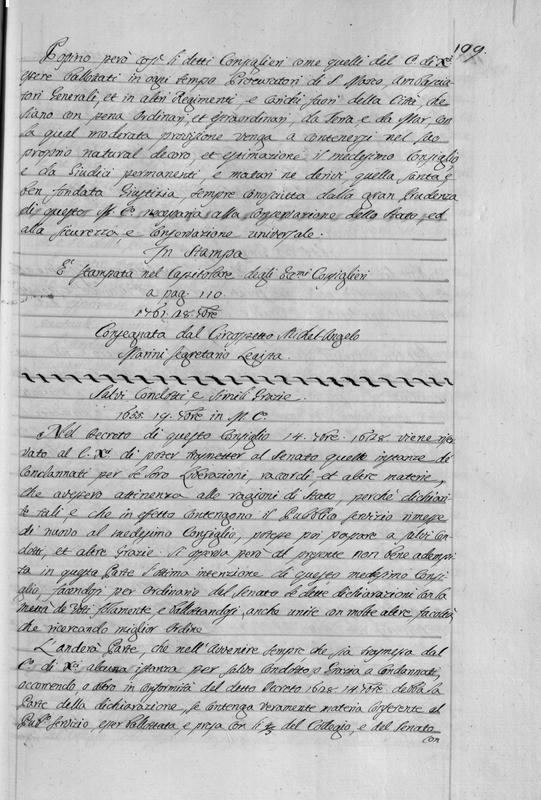 199.
Possino però così li detti Consiglieri come quelli del C.º di X.ci
esere ballottati in ogni tempo Procuratori di S. Marco, Ambascia-
tori Generali, et in altri Regimenti, e Carichi fuori della Città, de-
siano con pena Ordinarj, et Straordinarj, da Terra e da Mar, con
la qual moderata provisione venga a contenersi nel suo
proprio natural decoro, et estimazione il medesimo Consiglio,
e da Giudici permanenti e maturi ne derivi quella santa, e
ben fondata Giustizia, sempre conosciuta dalla gran Prudenza
di questo M. C.º necessaria alla Conservazione dello Stato, ed
alla sicurezza, e Conservazione universale.
In Stampa
E' stampata nel Capitolare degli Ecc.mi Consiglieri
a pag. 110.
1761. 18. 
Consegnata dal Circospetto Michel Angelo
Marini Segretario Legista.
Salvi Condotti, e Simili Grazie.
1655. 19. 9bre in M. C.º
Nel Decreto di questo Consiglio 14. 1628. viene riser-
vato al C. X.ci di poter trasmetter al Senato quelle instanze di
Condannati per le loro Liberazioni, racordi, et altre materie,
che avessero attinenza alle ragioni di Stato, perchè dichiari-
te tali, e che in effetto contengono il Pubblico servizio rimesse
di nuovo al medesimo Consiglio, potesse poi passare a salvi Con-
dotti, et altre Grazie. Si osserva però al presente non bene adempi-
ta in questa Parte l'ottima intenzione di questo medesimo Consi-
glio, facendosi per Ordinario dal Senato le dette dichiarazioni con la
metà de Voti solamente e ballottandosi anche unite con molte altre facoltà,
che ricercando miglior Ordine
L'anderà Parte, che nell'avvenire sempre che sia trasmessa dal
C.º di X.ci alcuna istanza per salvo Condotto, o Grazia a Condannati,
occorrendo, o altro in conformità del detto Decreto 1628. 14. debba la
Parte della dichiarazione, se contenga veramente materia conferente al
Pub.º servizio, esser ballottata, e presa con li 4/5 del Collegio, e del Senato
con